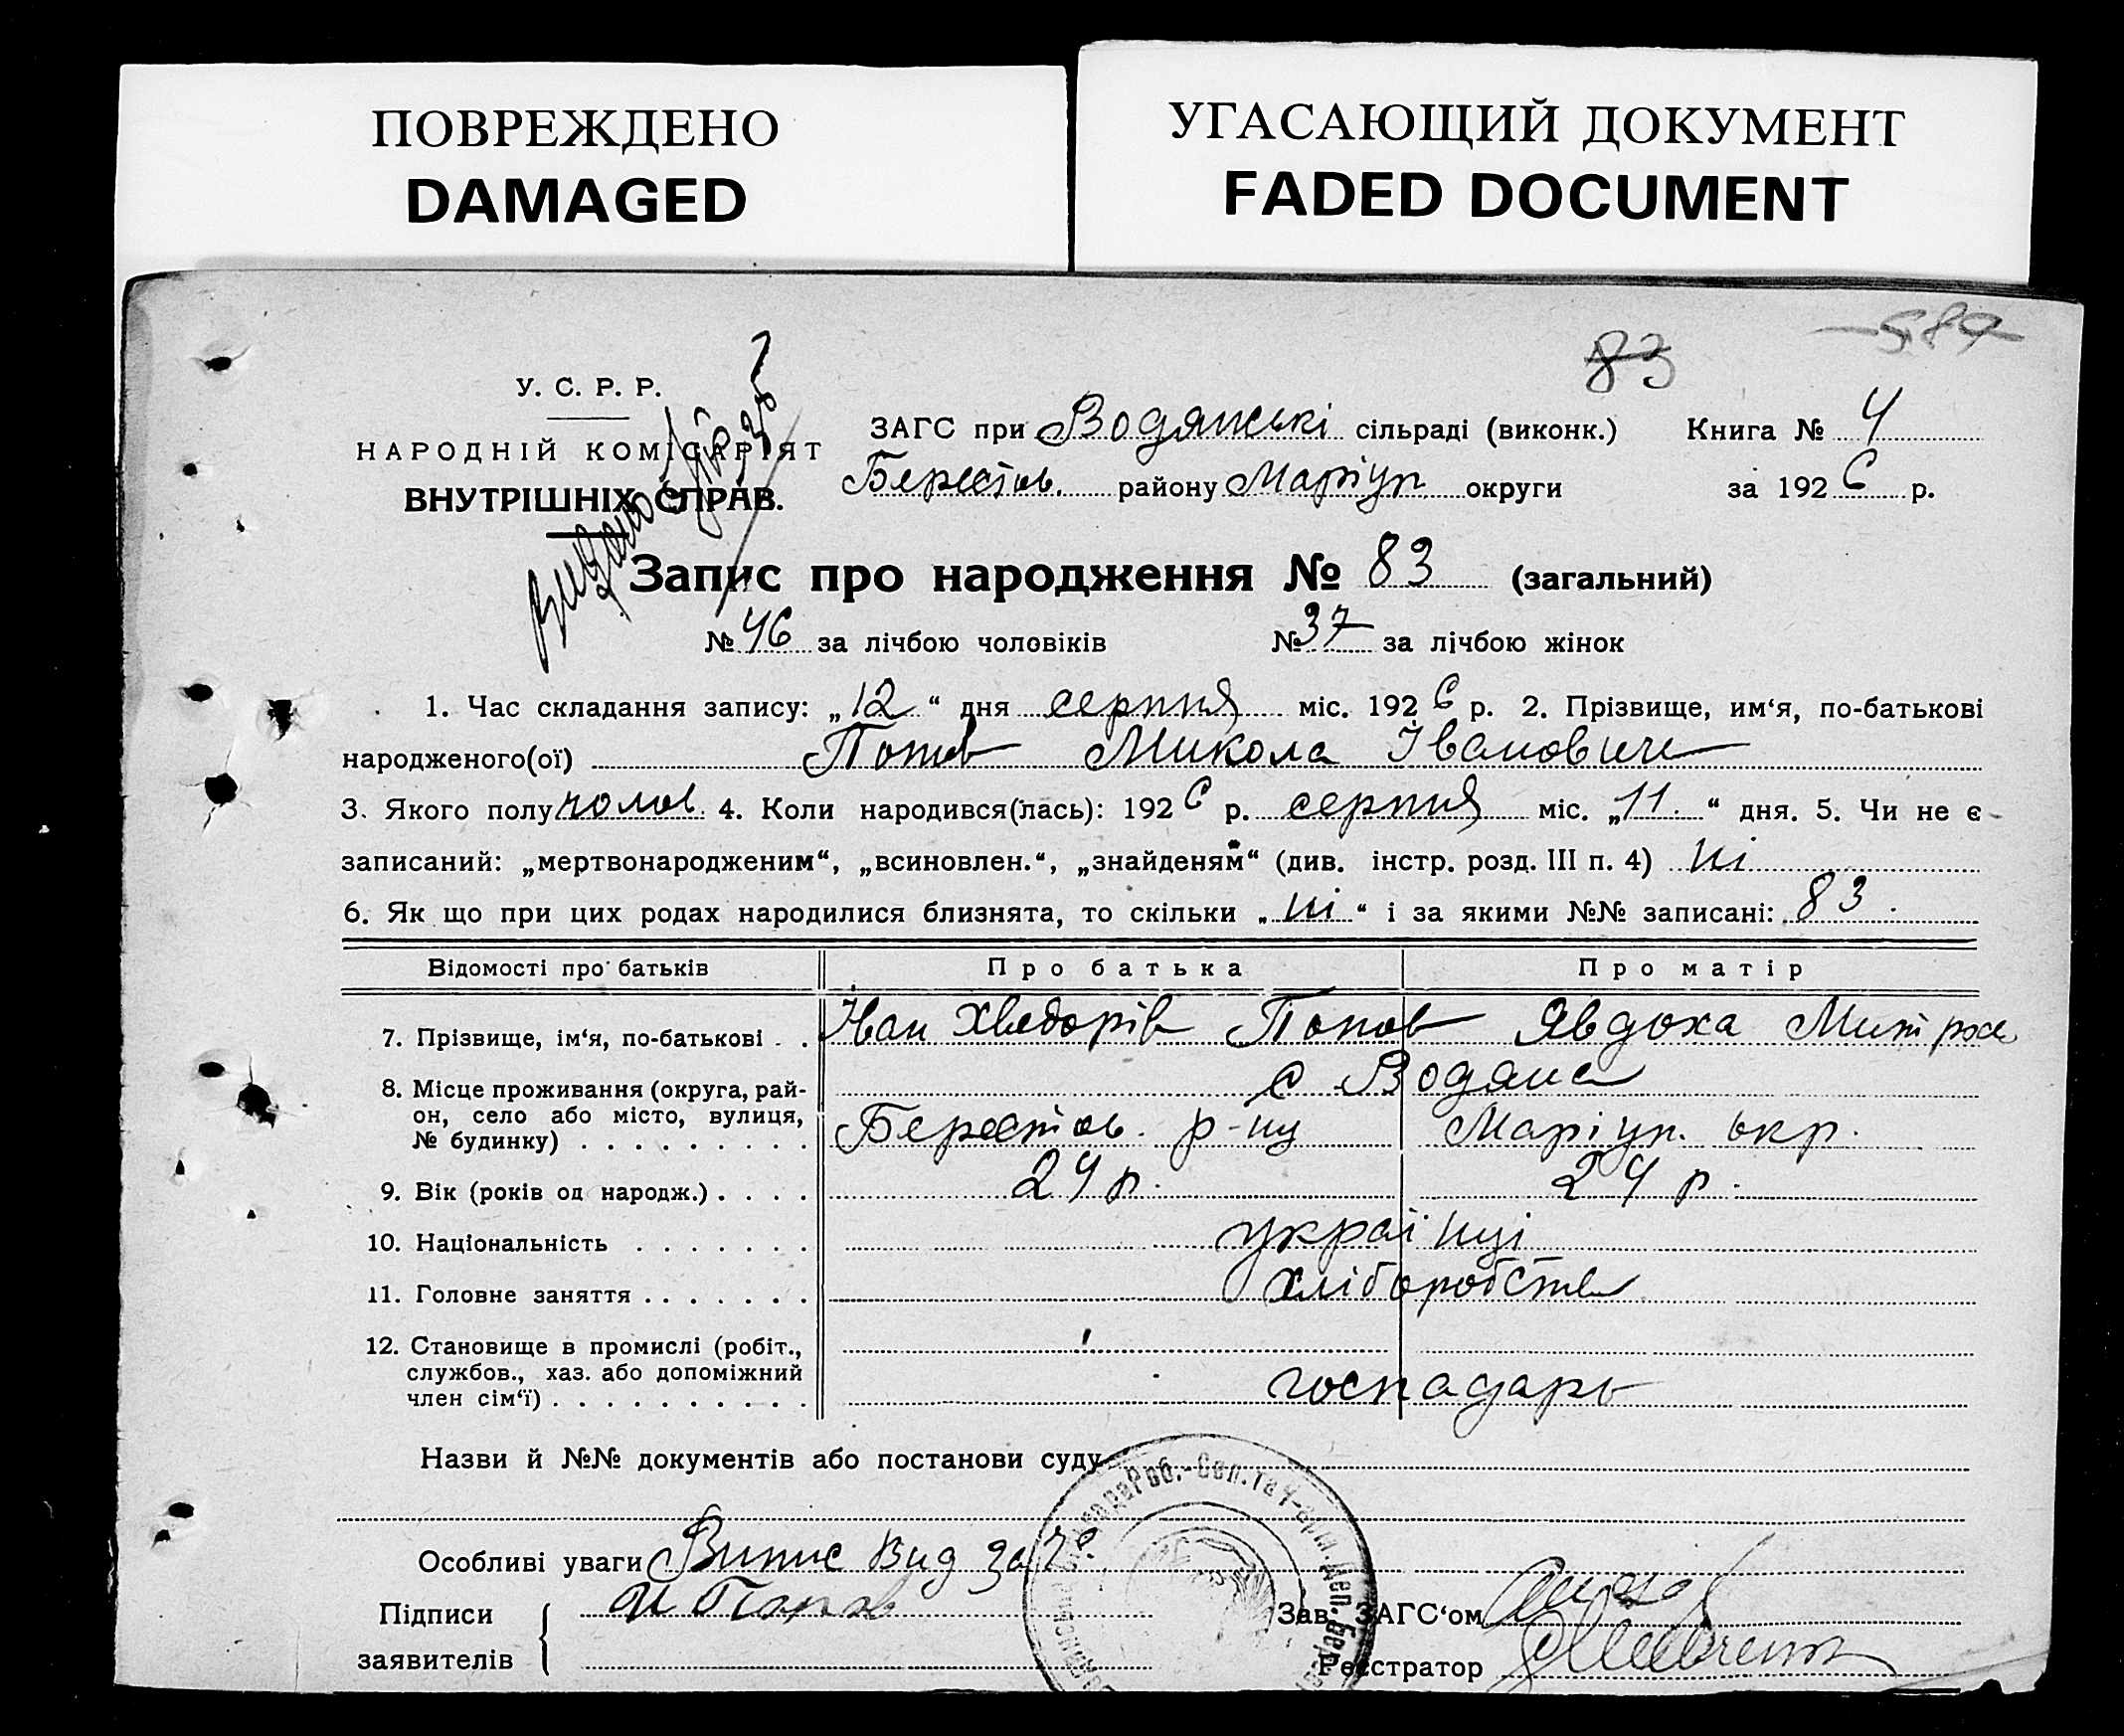 ПОВРЕЖДЕНО
DAMAGED
УГАСАЮЩИЙ ДОКУМЕНТ
FADED DOCUMENT
83 589
У. С. Р. Р.
НАРОДНІЙ КОМІСАРІЯТ
ВНУТРІШНІХ СПРАВ.
Видано
ЗАГС при Водянські сільраді (виконк.) Книга № 4
Берестов. району Маріуп округи за 1926 р.
Запис про народження № 83 (загальний)
№ 46 за лічбою чоловіків № 37 за лічбою жінок
1. Час складання запису: „12“ дня серпня міс. 1926 р. 2. Прізвище, им‘я, по-батькові
народженого(ої) Попов Микола Іванович
3. Якого полу чолов. 4. Коли народився(лась): 1926 р. серпня міс. „11.“ дня. 5. Чи не є
записаний: „мертвонародженим“, „всиновлен.“, „знайденям“ (див. інстр. розд. III п. 4) ні
6. Як що при цих родах народилися близнята, то скільки „ні“ і за якими №№ записані: 83.
Відомості про батьків Про батька Про матір
7. Прізвище, ім‘я, по-батькові . . Іван Хведорів Попов Явдоха Митроф
8. Місце проживання (округа, рай- с Водяна
он, село або місто, вулиця, Берестов. р-ну Маріуп. окр.
№ будинку) . . . . . . . . .
9. Вік (років од народж.) . . . . 24 р. 24 р.
10. Національність . . . . . . . українці
11. Головне заняття . . . . . . . хліборобств
12. Становище в промислі (робіт.,
службов., хаз. або допоміжний господарь
член сім‘ї) . . . . . . . . . .
Назви й №№ документів або постанови суду
Роб.-Сел. та Ч-арм. Деп. Бер
Особливі уваги Випис вид
Підписи И Попов Зав. ЗАГС‘ом
заявителів Реєстратор Шевченко